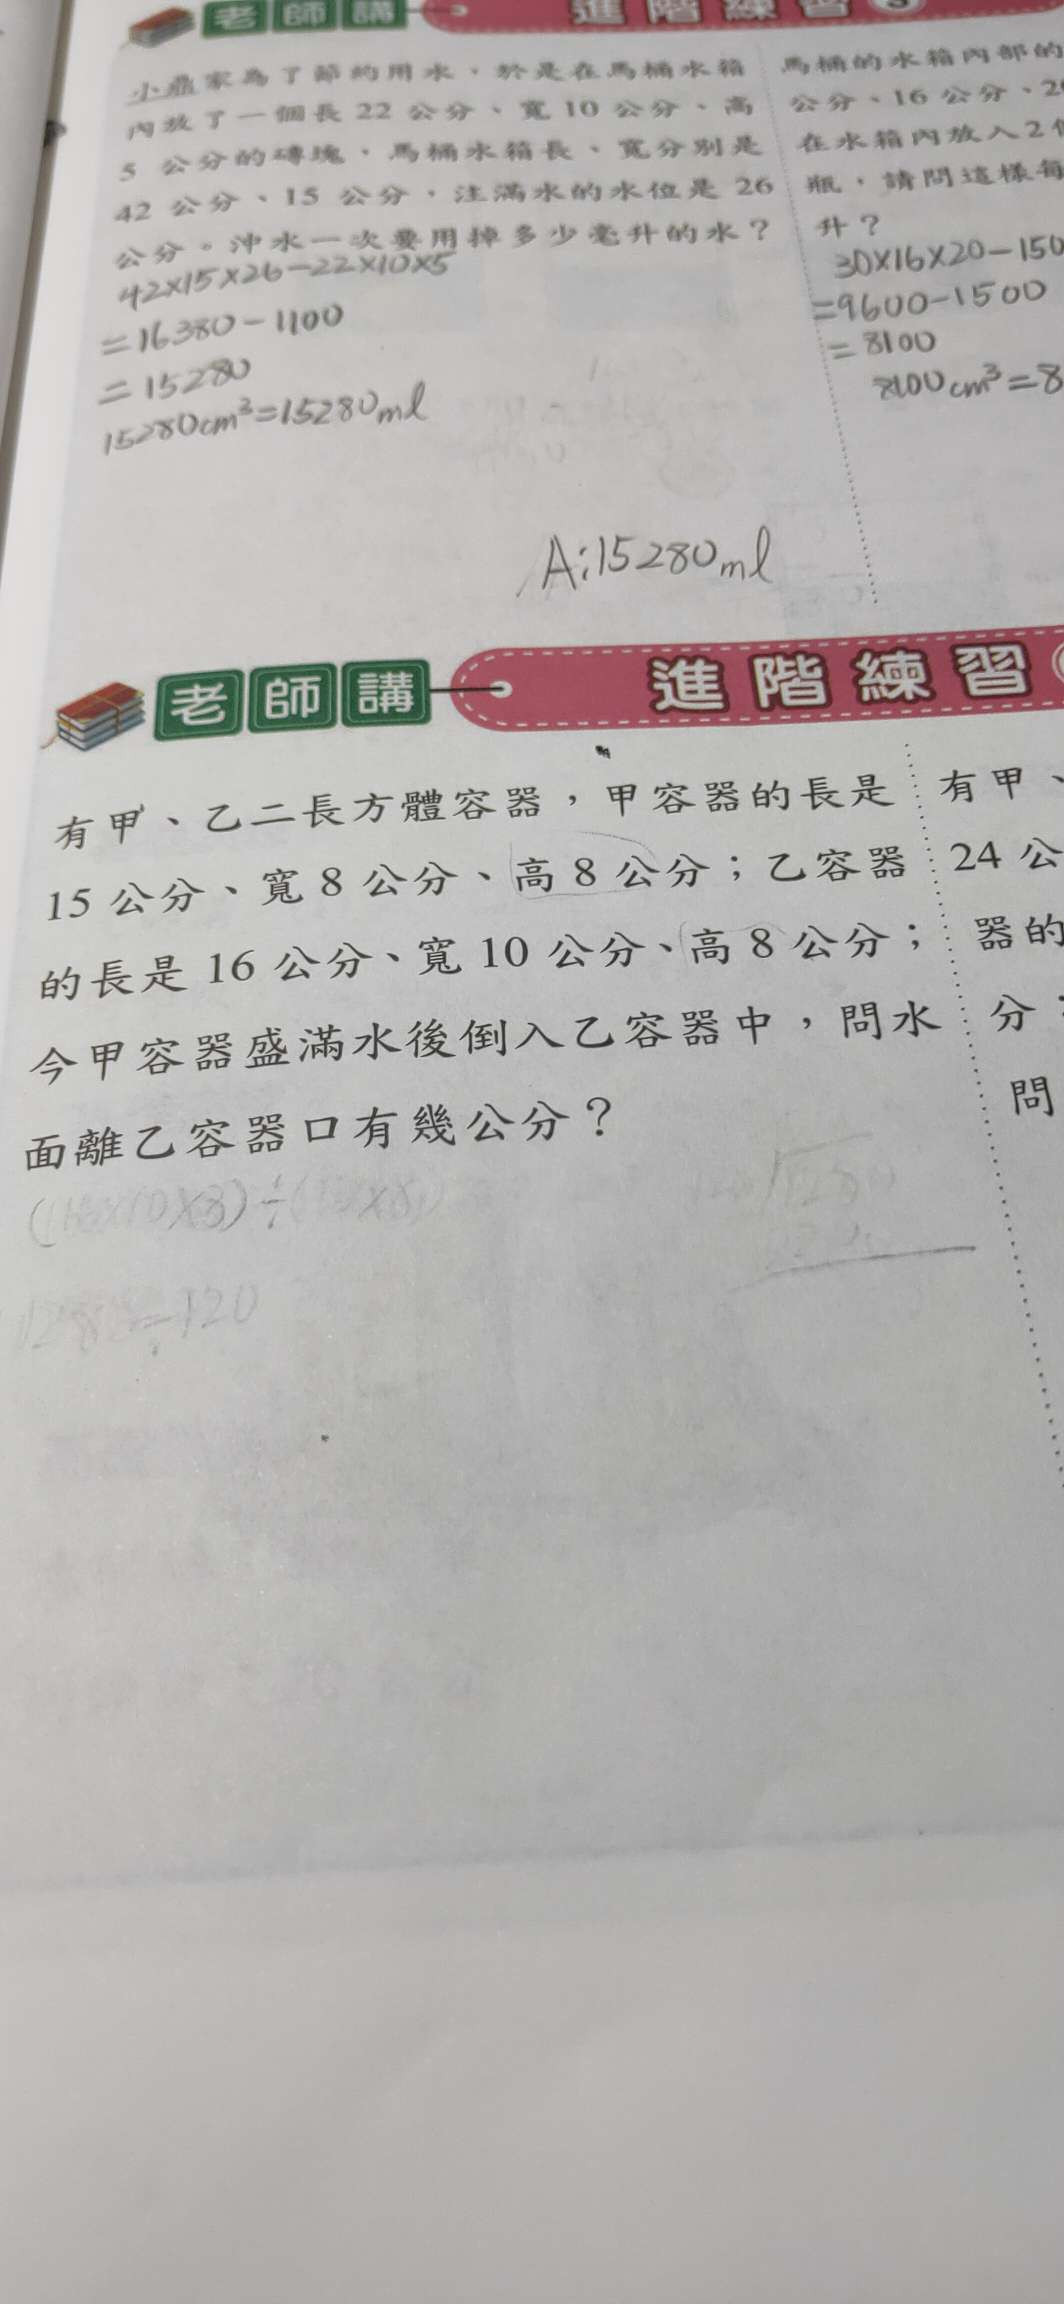 老師講 進階練習
小鼎家為了節約用水，於是在馬桶水箱
內放了一個長 22 公分、寬 10 公分、高
5 公分的磚塊，馬桶水箱長、寬分別是
42 公分、15 公分，注滿水的水位是 26
公分。沖水一次要用掉多少毫升的水？
42×15×26-22×10×5
=16380-1100
=15280
15280cm³=15280ml
A:15280ml
馬桶的水箱內部的
公分、16 公分、2
在水箱內放入2
瓶，請問這樣每
升？
30×16×20-150
=9600-1500
=8100
8100cm³=8
老師講 進階練習
有甲、乙二長方體容器，甲容器的長是
15 公分、寬 8 公分、高 8 公分；乙容器
的長是 16 公分、寬 10 公分、高 8 公分；
今甲容器盛滿水後倒入乙容器中，問水
面離乙容器口有幾公分？
有甲、
24 公
器的
分；
問